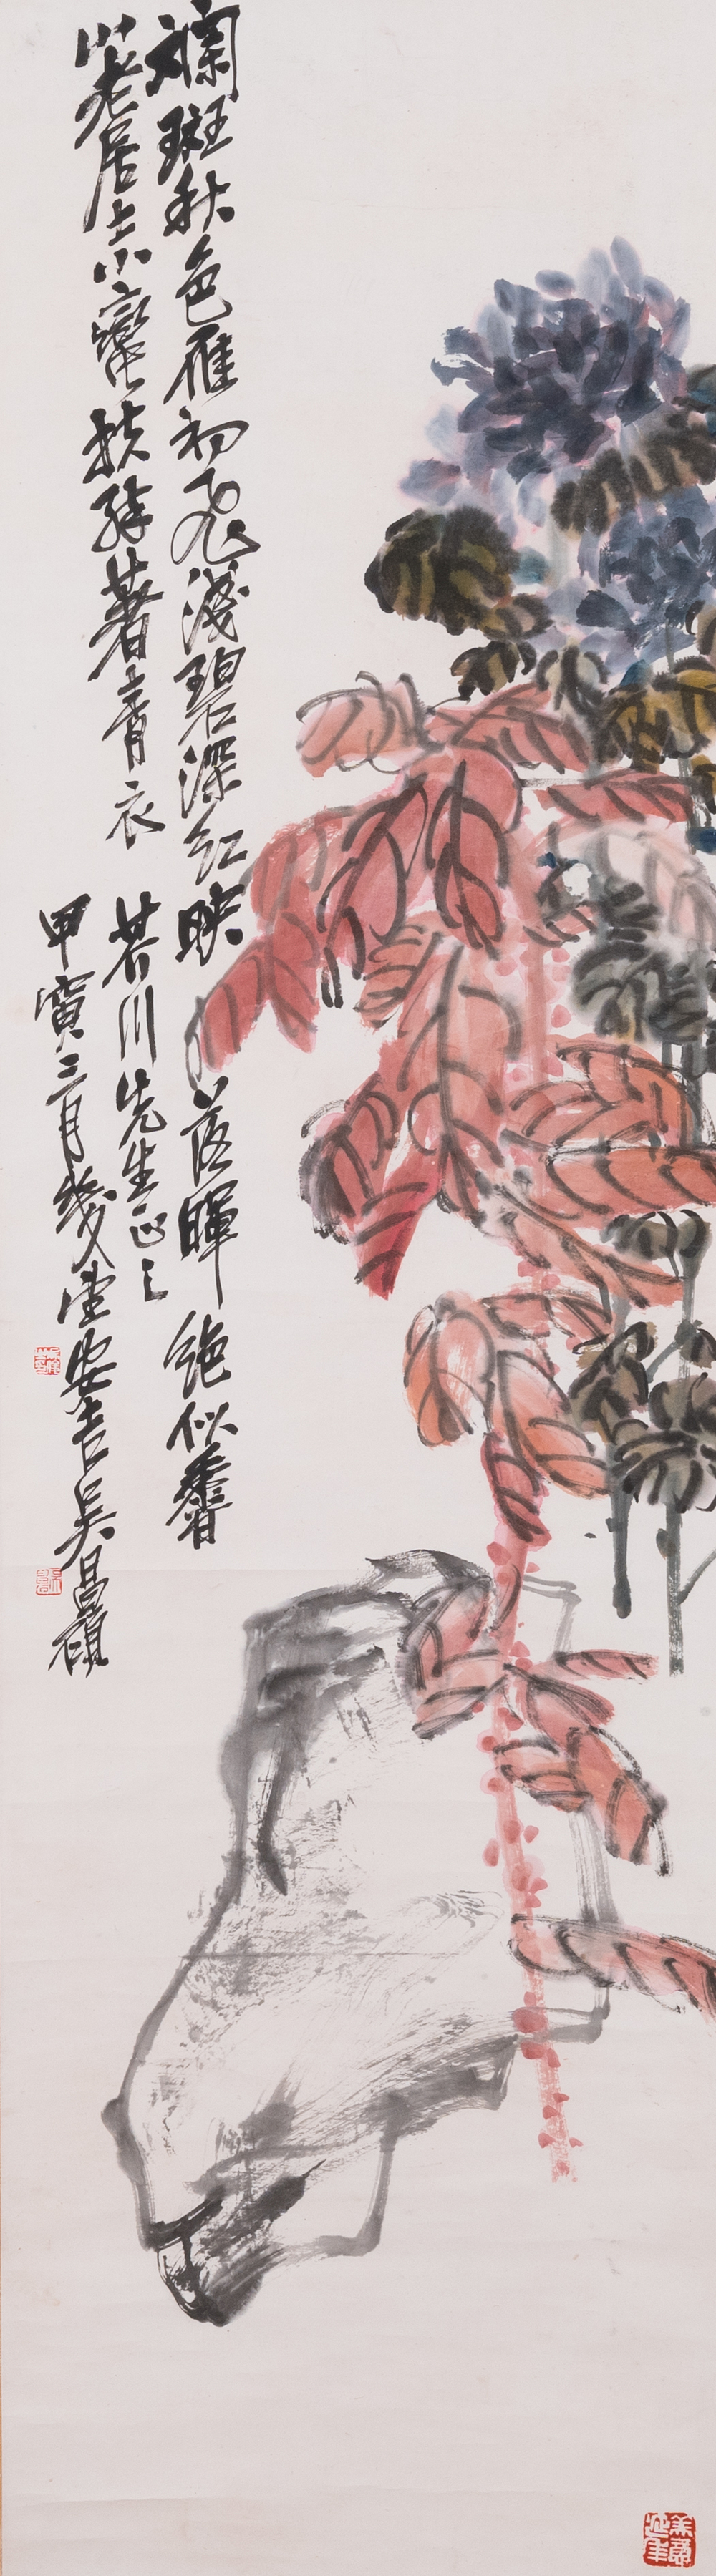 斕斑秋色雁初飛淺碧深紅映落暉絕似香
山老居士小蠻扶醉著青衣
芥川先生正之
甲寅三月幾望安吉吳昌碩